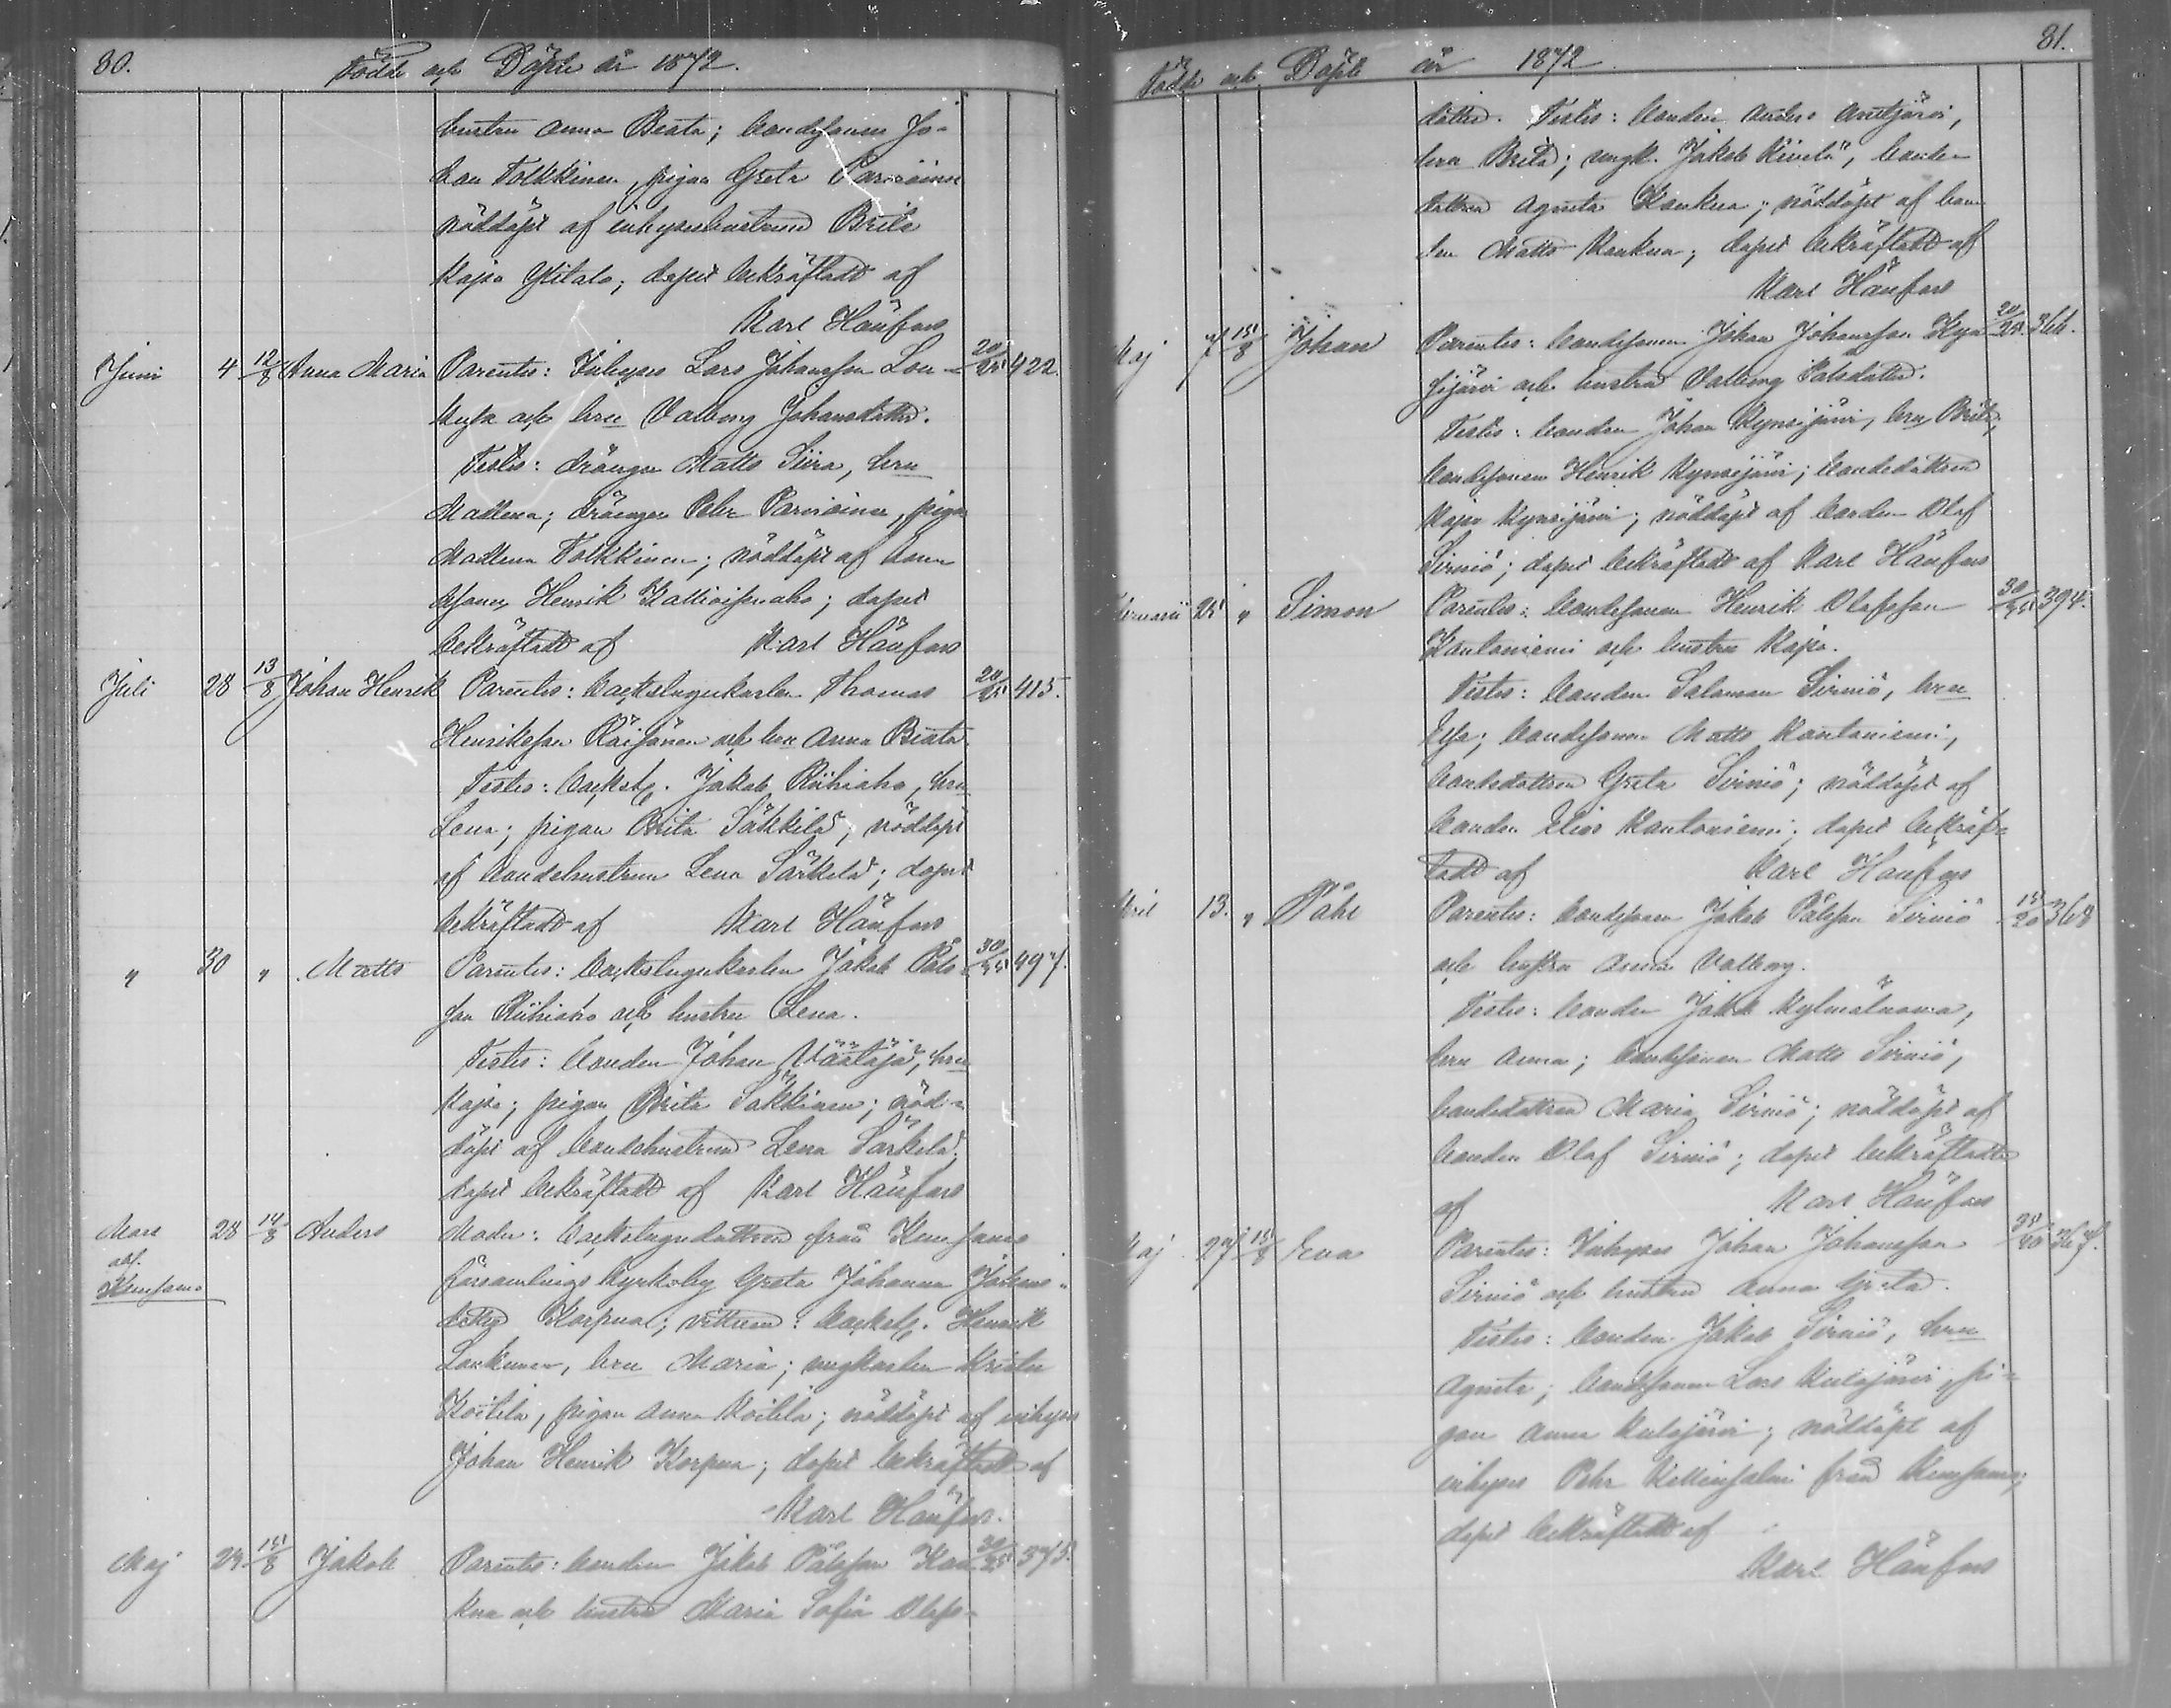 80.
Födde och Döpte år 1872.
hustru Anna Beata; bondesonen Jo-
han Tolkkinen, pigan Greta Parviainen
nöddöpt af inhyseshustrun Brita
Kajsa Ylitalo; dopet bekräftadt af
Karl Hänfors
Juni 4 12/8 Anna Maria Parentes: Inhyses Lars Johansson Lou- 20/25 422.
kusa och hru Valborg Johansdotter.
Testes: drängen Matts Siira, hru
Madlena; drängen Pehr Parviainen, pigan
Madlena Tolkkinen; nöddöpt af bon-
desonen Henrik Kallioisenaho; dopet
bekräftadt af Karl Hänfors
Juli 28 13/8 Johan Henrik Parentes: backstugukarlen Thomas 20/25 415.
Henriksson Räisänen och hru Anna Beata
Testes: backst. Jakob Riihiaho, hru
Lena; pigan Brita Säkkilä; nöddöpt
af bondehustrun Lena Särkelä; dopet
bekräftadt af Karl Hänfors
" 30 " Matts Parentes: backstugukarlen Jakob Påls- 30/35 497.
son Riihiaho och hustru Lena.
Testes: bonden Johan Väätäjä, hru
Kajsa; pigan Brita Säkkinen; nöd-
döpt af bondehustrun Lena Särkelä;
dopet bekräftadt af Karl Hänfors
Mars 28 14/8 Anders Moder: backstugudottren från Kuusamo
Kuusamo
församlings kyrkoby Greta Johanna Johans-
dotter Korpua; vittnen: backst. Henrik
Lonkinen, hru Maria; ungkarlen Krister
Koitila, pigan Anna Koitila; nöddöpt af inhyses
Johan Henrik Korpua; dopet bekräftadt af
Karl Hänfors.
Maj 29 15/8 Jakob Parentes: bonden Jakob Pålsson Kau- 30/35 375.
kua och hustru Maria Sofia Olofs-
81.
Födde och Döpte år 1872
dotter. Testes: bonden Anders Anttijärvi,
hru Brita; ungk. Jakob Kivelä, bonde-
dottren Agneta Kaukua; nöddöpt af bon-
den Matts Kaukua; dopet bekräftadt af
Karl Hänfors
Maj 7 15/8 Johan Parentes: bondesonen Johan Johansson Kyn- 20/25 366.
sijärvi och hustru Valborg Pålsdotter.
Testes: bonden Johan Kynsijärvi, hru Brita;
bondesonen Henrik Kynsijärvi; bondedottren
Kajsa Kynsijärvi; nöddöpt af bonden Olof
Sirniö; dopet bekräftadt af Karl Hänfors
25 " Simon Parentes: bondesonen Henrik Olofsson 30/35 394.
Kantoniemi och hustru Kajsa.
Testes: bonden Salomon Sirniö, hru
Elsa; bondesonen Matts Kantoniemi,
bondedottren Greta Sirniö; nöddöpt af
bonden Elias Kantoniemi; dopet bekräf-
tadt af Karl Hänfors
April 13. " Påhl Parentes: bondesonen Jakob Pålsson Sirniö 15/20 368
och hustru Anna Valborg.
Testes: bonden Jakob Kylmäluoma,
hru Anna; bondesonen Matts Sirniö,
bondedottren Maria Sirniö; nöddöpt af
bonden Olof Sirniö; dopet bekräftadt
af Karl Hänfors
Maj 27 15/8 Eva Parentes: Inhyses Johan Johansson 35/40 367.
Sirniö och hustru Anna Greta.
Testes: bonden Jakob Sirniö, hru
Agneta; bondesonen Lars Kulojärvi, pi-
gan Anna Kulojärvi; nöddöpt af
inhyses Pehr Kallinsalmi från Kuusamo;
dopet bekräftadt af
Karl Hänfors